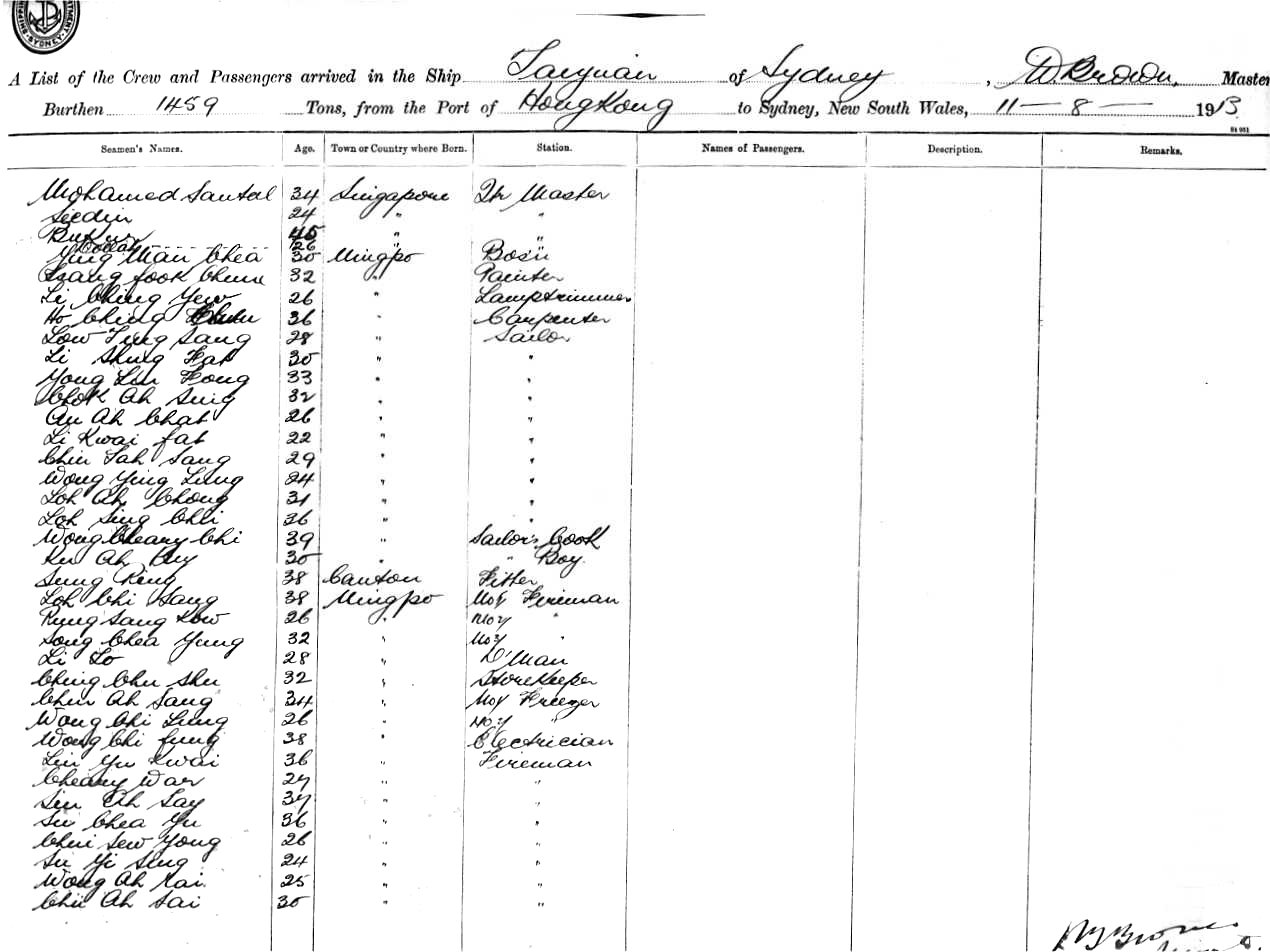 SHIPPING DEPARTMENT SYDNEY
A List of the Crew and Passengers arrived in the Ship Taiyuan of Sydney, W. Brown, Master
Burthen 1459 Tons, from the Port of HongKong to Sydney, New South Wales, 11 - 8 - 1913
Seamen's Names. Age. Town or Country where Born. Station. Names of Passengers. Description. Remarks.
Mohamed Santal 34 Singapore Qr Master
Seedin 24 " "
45 " "
26
Ying Man Chea 30 Mingpo Bos'n
Tsang Fook 32 " Painter
Li Ching Yew 26 " Lamptrimmer
Ho Ching 36 " Carpenter
Low Ting Sang 28 " Sailor
Li Shing Fat 30 " "
Yong Lin Fong 33 " "
Chok Ah Sing 32 " "
Au Ah Chat 26 " "
Li Kwai Fat 22 " "
Chin Tah Sang 29 " "
Wong Ying Lung 24 " "
Loh Ah Chong 31 " "
Loh Sing Chi 36 " "
Wong Cheang Chi 39 " Sailor's Cook
Ah 30 " " Boy
Sung King 38 Canton Fitter
Loh Chi Sang 38 Mingpo No 1 Fireman
Kung Sang Low 26 " No 2 "
Song Chea Yung 32 " No 3 "
Li Lo 28 " D'Man
Ching Chu Shu 32 " Storekeeper
Chun Ah Sang 34 " No 1 Freezer
Wong Chi Lung 26 " No 2 "
Wong Chi Fung 38 " Electrician
Lin Yu Kwai 36 " Fireman
Cheang War 27 " "
Sin Ah Say 37 " "
Su Chea Yu 36 " "
Chui Sew Yong 26 " "
Su Yi Sing 24 " "
Wong Ah Kai 25 " "
Chu Ah Sai 30 " "